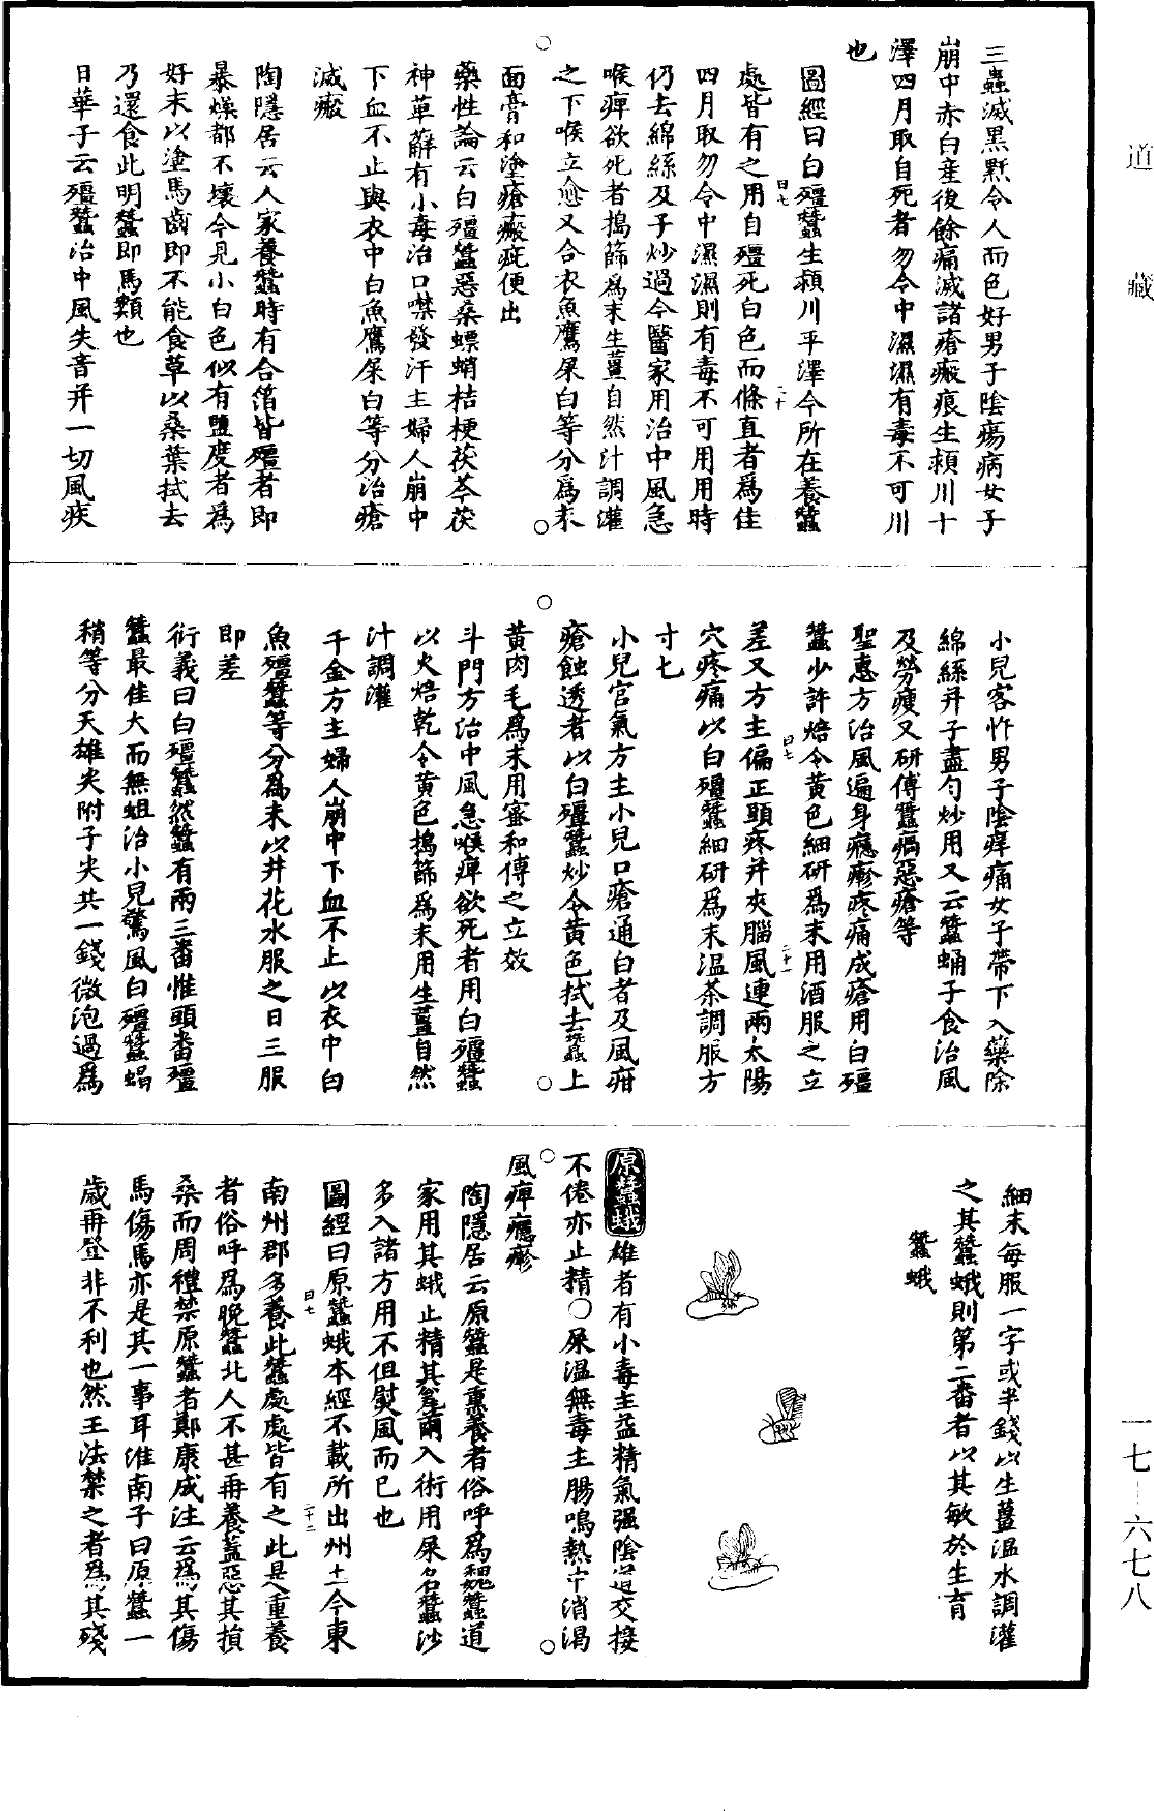 三蟲滅黑䵟令人面色好男子陰瘍病女子
崩中赤白產後餘痛滅諸瘡瘢痕生潁川十
澤四月取自死者勿令中濕濕有毒不可川
也
圖經曰白殭蠶生潁川平澤今所在養蠶
處皆有之用自殭死白色而條直者爲佳
四月取勿令中濕濕則有毒不可用用時
仍去綿絲及子炒過今醫家用治中風急
喉痺欲死者搗篩爲末生薑自然汁調灌
之下喉立愈又合衣魚鷹屎白等分爲末
面膏和塗瘡瘢疵便出
藥性論云白殭蠶惡桑螵蛸桔梗茯苓茯
神萆薢有小毒治口噤發汗主婦人崩中
下血不止與衣中白魚鷹屎白等分治瘡
滅瘢
陶隱居云人家養蠶時有合箔皆殭者即
暴燥都不壞今見小白色似有鹽度者爲
好末以塗馬齒即不能食草以桑葉拭去
乃還食此明蠶即馬類也
日華子云殭蠶治中風失音并一切風疾
小兒客忤男子陰痒痛女子帶下入藥除
綿絲并子盡勻炒用又云蠶蛹子食治風
及勞瘦又研傅蠶瘑惡瘡等
聖惠方治風遍身癮疹疼痛成瘡用白殭
蠶少許焙令黃色細研爲末用酒服之立
差又方主偏正頭疼并夾腦風連兩太陽
穴疼痛以白殭蠶細研爲末温茶調服方
寸七
小兒宫氣方主小兒口瘡通白者及風疳
瘡蝕透者以白殭蠶炒令黃色拭去蠶上
黃肉毛爲末用蜜和傅之立效
斗門方治中風急喉痺欲死者用白殭蠶
以火焙乾令黃色搗篩爲末用生薑自然
汁調灌
千金方主婦人崩中下血不止以衣中白
魚殭蠶等分爲末以井花水服之日三服
即差
衍義曰白殭蠶然蠶有兩三番惟頭番殭
蠶最佳大而無蛆治小兒驚風白殭蠶蝎
稍等分天雄尖附子尖共一錢微泡過爲
細末每服一字或半錢以生薑温水調灌
之其蠶蛾則第二番者以其敏於生育
蠶蛾
原蠶蛾雄者有小毒主益精氣强陰道交接
不倦亦止精○屎温無毒主腸鳴熱中消渴
風痺癮疹
陶隱居云原蠶是熏養者俗呼爲魏蠶道
家用其蛾止精其瓮繭入術用屎名蠶沙
多入諸方用不但熨風而已也
圖經曰原蠶蛾本經不載所出州土今東
南州郡多養此蠶處處皆有之此是重養
者俗呼爲晚蠶北人不甚再養蓋惡其損
桑而周禮禁原蠶者鄭康成注云爲其傷
馬傷馬亦是其一事耳淮南子曰原蠶一
歲再登非不利也然王法禁之者爲其殘
道藏
一七—六七八